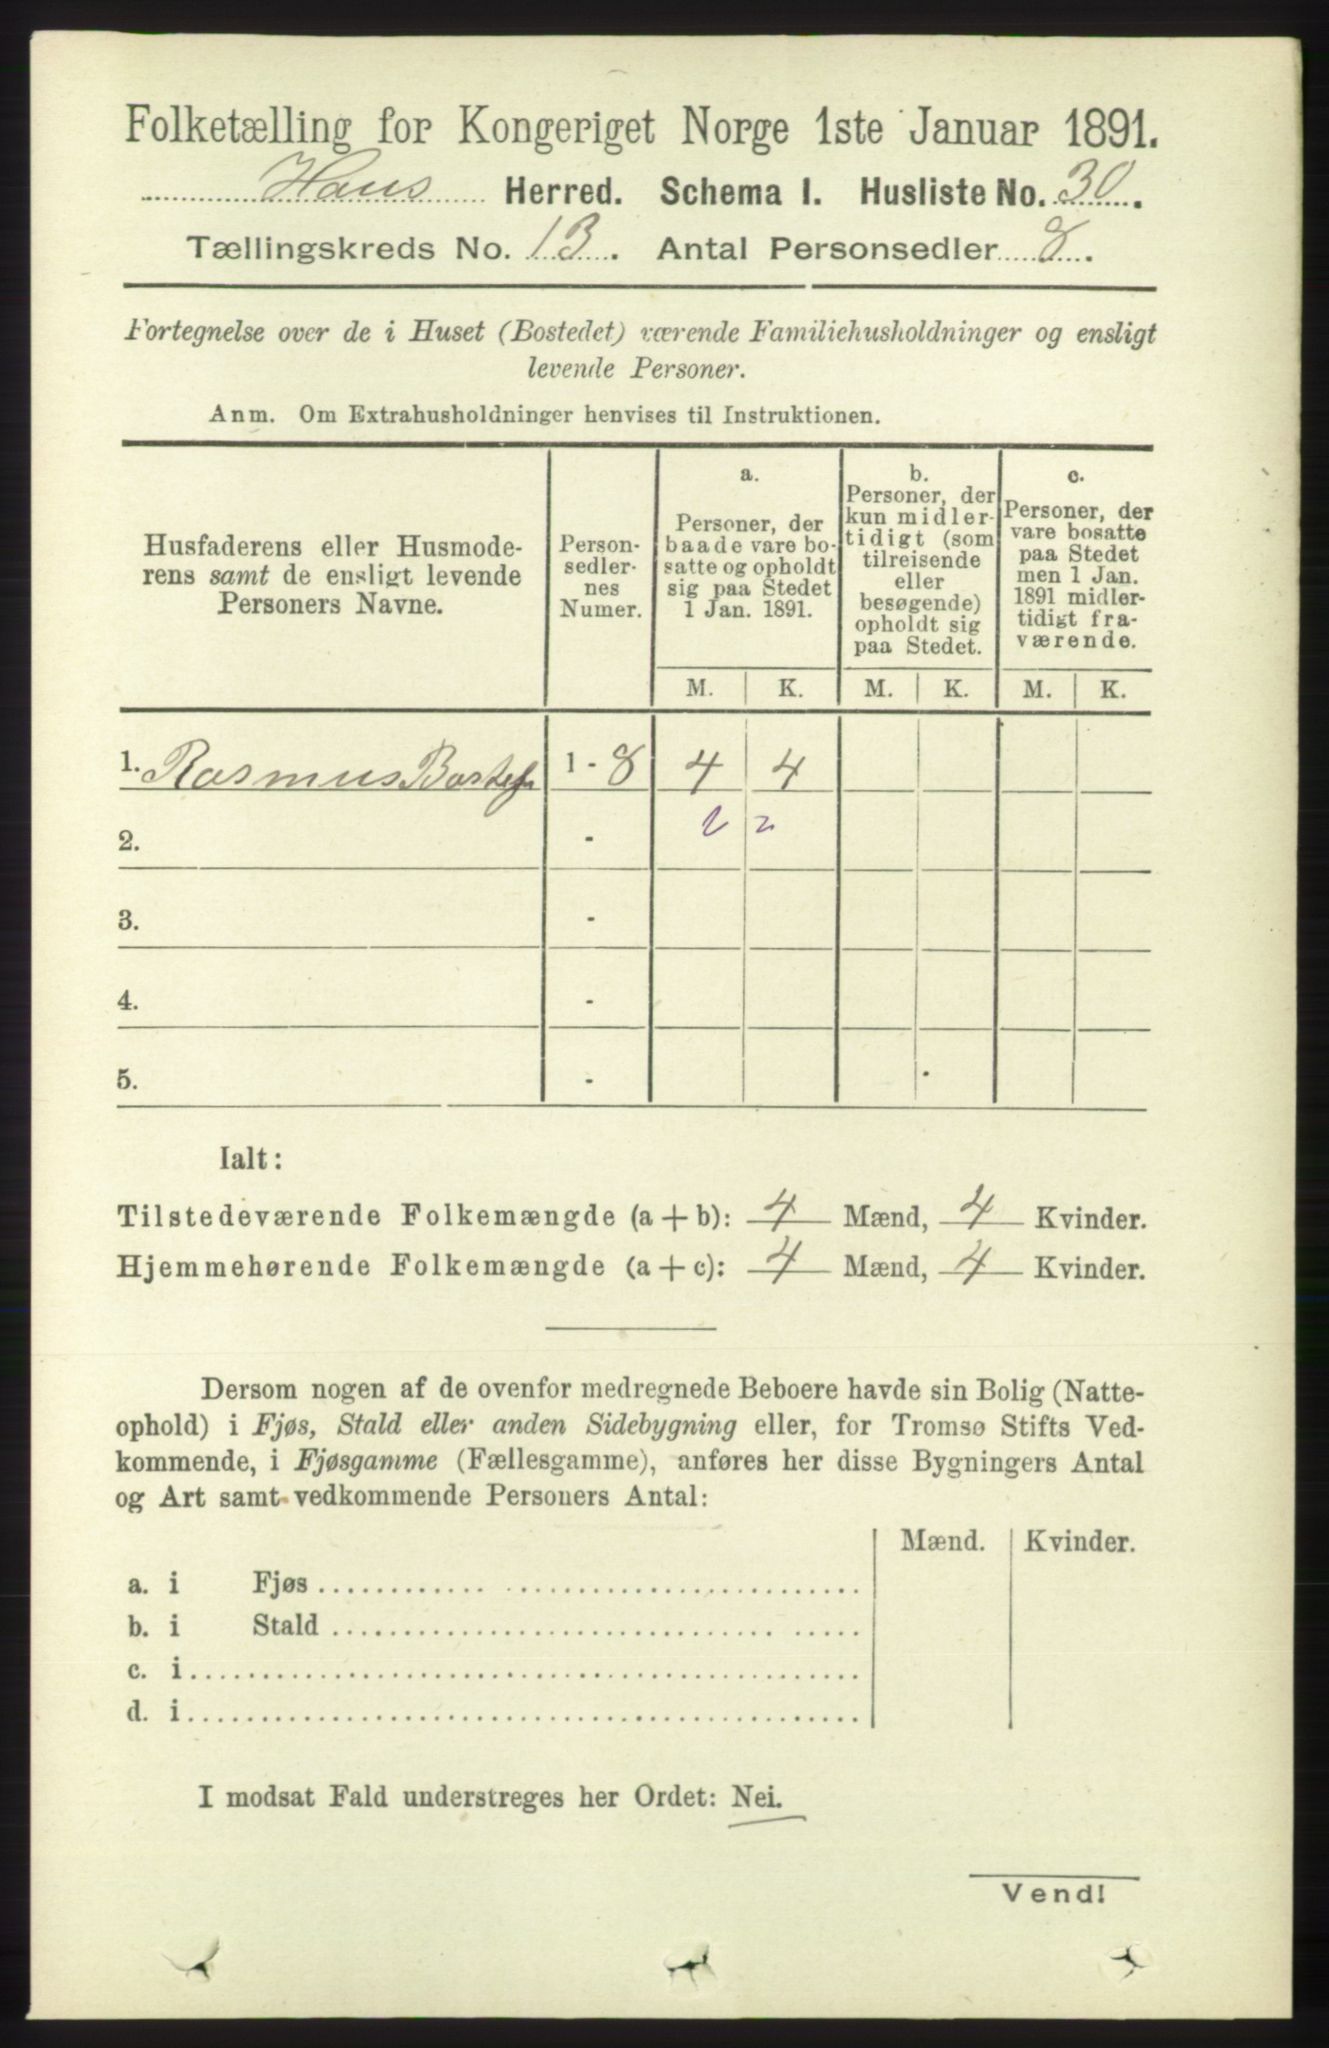 Folketælling for Kongeriget Norge 1ste Januar 1891.
Haus Herred. Schema 1. Husliste No. 30.
Tællingskreds No. 13. Antal Personsedler 8.
Fortegnelse over de i Huset (Bostedet) værende Familiehusholdninger og ensligt
levende Personer.
Anm. Om Extrahusholdninger henvises til Instruktionen.
Husfaderens eller Husmode-
rens samt de ensligt levende
Personers Navne.
Person-
sedler-
nes
Numer.
a.
Personer, der
baade vare bo-
satte og opholdt
sig paa Stedet
1 Jan. 1891.
b.
Personer, der
kun midler-
tidigt (som
tilreisende
eller
besøgende)
opholdt sig
paa Stedet.
c.
Personer, der
vare bosatte
paa Stedet
men 1 Jan.
1891 midler-
tidigt fra-
værende.
M. K. M. K. M. K.
1. Rasmus 1 - 8 4 4
2. - 2 2
3. -
4. -
5. -
Ialt:
Tilstedeværende Folkemængde (a + b): 4 Mænd, 4 Kvinder.
Hjemmehørende Folkemængde (a + c): 4 Mænd, 4 Kvinder.
Dersom nogen af de ovenfor medregnede Beboere havde sin Bolig (Natte-
ophold) i Fjøs, Stald eller anden Sidebygning eller, for Tromsø Stifts Ved-
kommende, i Fjøsgamme (Fællesgamme), anføres her disse Bygningers Antal
og Art samt vedkommende Personers Antal:
Mænd. Kvinder.
a. i Fjøs
b. i Stald
c. i
d. i
I modsat Fald understreges her Ordet: Nei.
Vend!